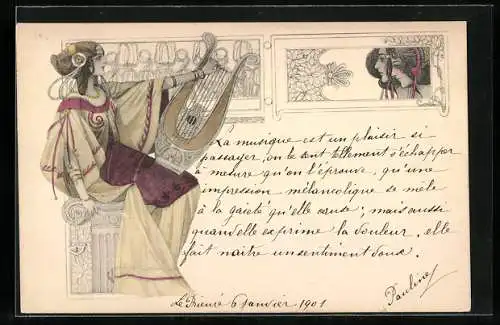 La musique est un plaisir si
passager, on le sent tellement s'échapper
à mesure qu'on l'éprouve, qu'une
impression mélancolique se mêle
à la gaieté qu'elle cause; mais aussi
quand elle exprime la douleur, elle
fait naître un sentiment doux.
Pauline
Le Prieuré 6 Janvier 1901